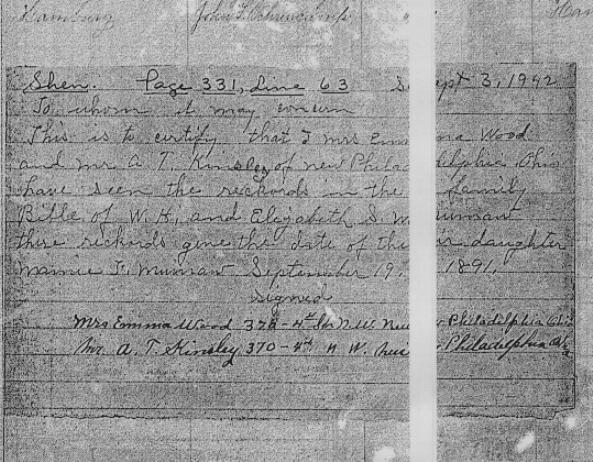 Hamburg John F. Ham
Shen. Page 331, Line 63 Sept 3, 1942
To whom it may concern
This is to certify that I mrs Emma Wood
and mr. A. T. Kinsley of new Philadelphia Ohio
have seen the reckords in the family
Bible of W. H. and Elizabeth S. Mumaw
these reckords gine the date of their daughter
mamie F. Mumaw September 19, 1891.
Signed
Mrs Emma Wood 378 - 4th N.W. New Philadelphia Ohio
Mr. A. T. Kinsley 370 - 4th N W. New Philadelphia